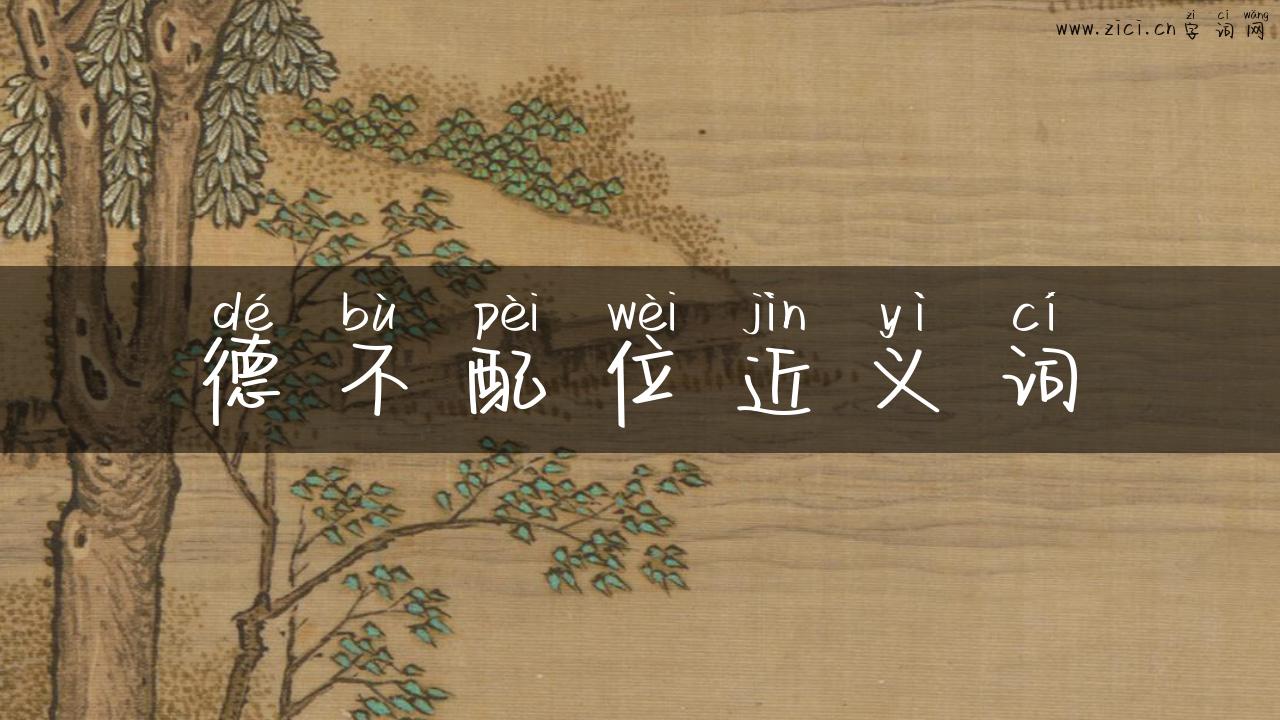 zì cí wǎng
www.zici.cn 字词网
dé bù pèi wèi jìn yì cí
德不配位近义词